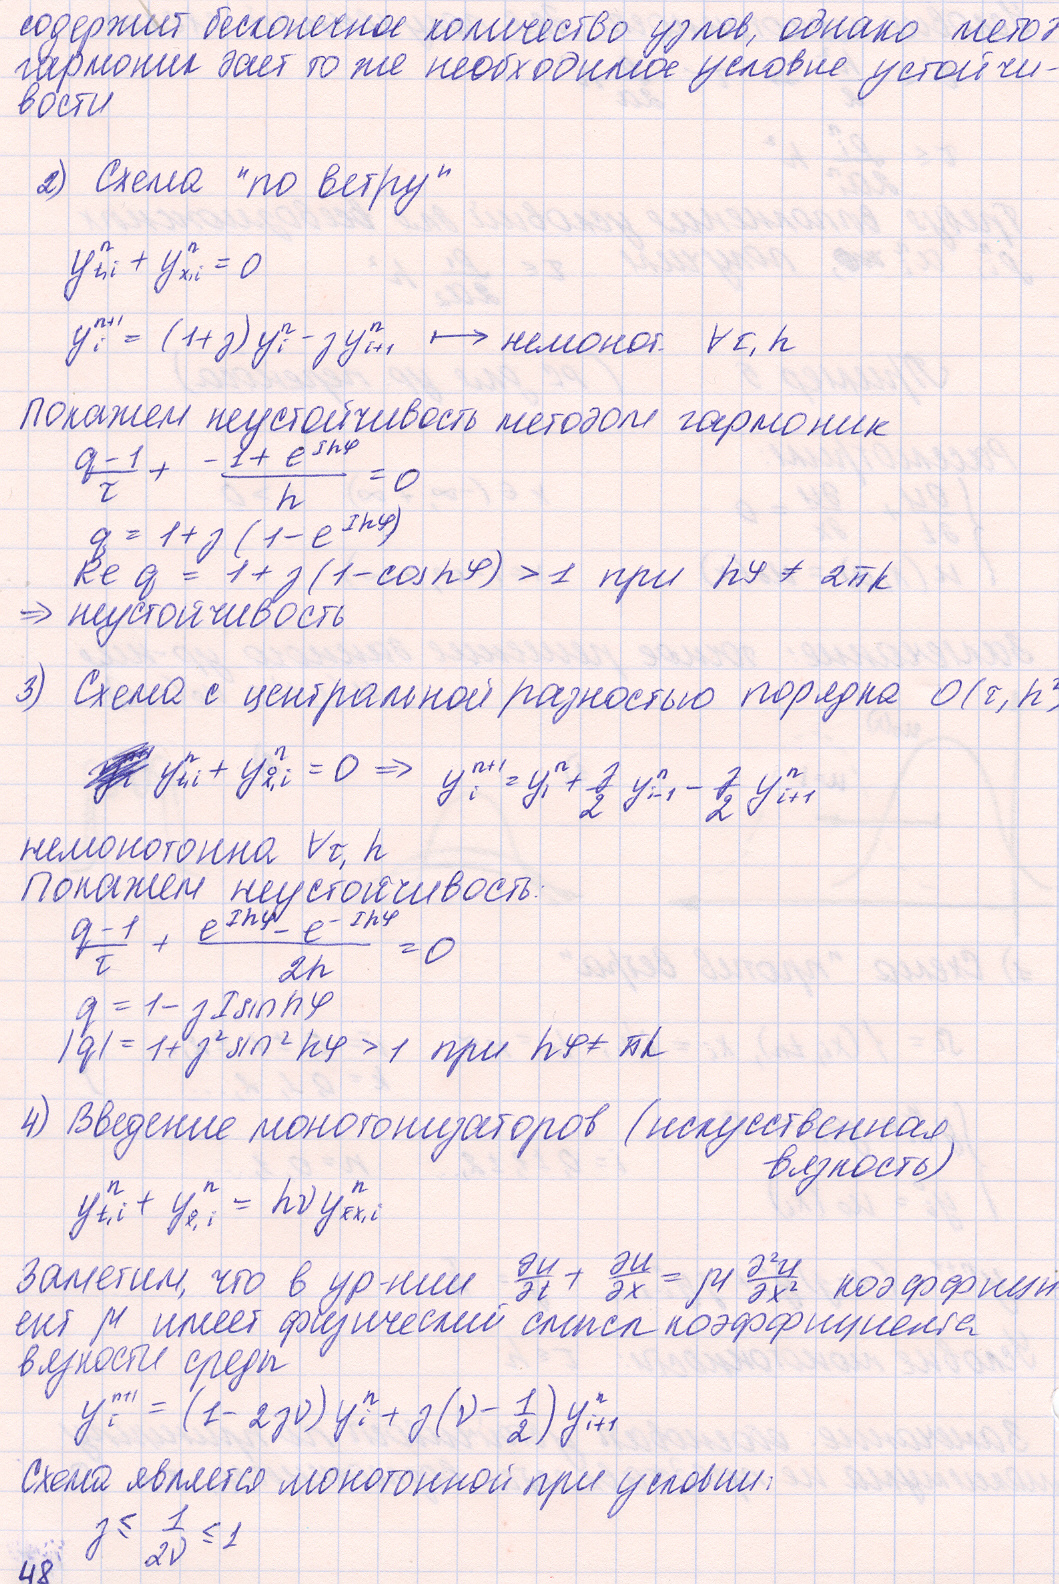 содержит бесконечное количество узлов, однако метод
гармоник дает то же необходимое условие устойчи-
вости
2) Схема "по ветру"
y^n_{t,i} + y^n_{x,i} = 0
y^{n+1}_i = (1+γ)y^n_i - γy^n_{i+1} ↦ немонот. ∀τ, h
Покажем неустойчивость методом гармоник
(q-1)/τ + (-1+e^{Ihφ})/h = 0
q = 1+γ(1-e^{Ihφ})
Re q = 1+γ(1-cos hφ) > 1 при hφ ≠ 2πk
⇒ неустойчивость
3) Схема с центральной разностью порядка O(τ, h²
y^n_{t,i} + y^n_{x̊,i} = 0 ⇒ y^{n+1}_i = y^n_i + γ/2 y^n_{i-1} - γ/2 y^n_{i+1}
немонотонна ∀τ, h
Покажем неустойчивость:
(q-1)/τ + (e^{Ihφ} - e^{-Ihφ})/2h = 0
q = 1-γI sin hφ
|q| = 1+γ² sin² hφ > 1 при hφ ≠ πk
4) Введение монотонизаторов (искусственная
вязкость)
y^n_{t,i} + y^n_{x̊,i} = hνy^n_{x̄x,i}
Заметим, что в ур-нии ∂u/∂t + ∂u/∂x = μ ∂²u/∂x² коэффици
ент μ имеет физический смысл коэффициента
вязкости среды
y^{n+1}_i = (1-2γν)y^n_i + γ(ν - 1/2)y^n_{i+1}
Схема является монотонной при условии:
γ ≤ 1/2ν ≤ 1
48